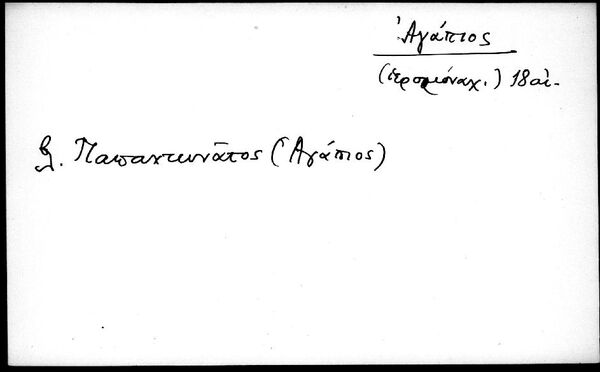 Ἀγάπιος
(ἱερομόναχ.) 18 αἰ.
βλ. Παπαντωνᾶτος (Ἀγάπιος)